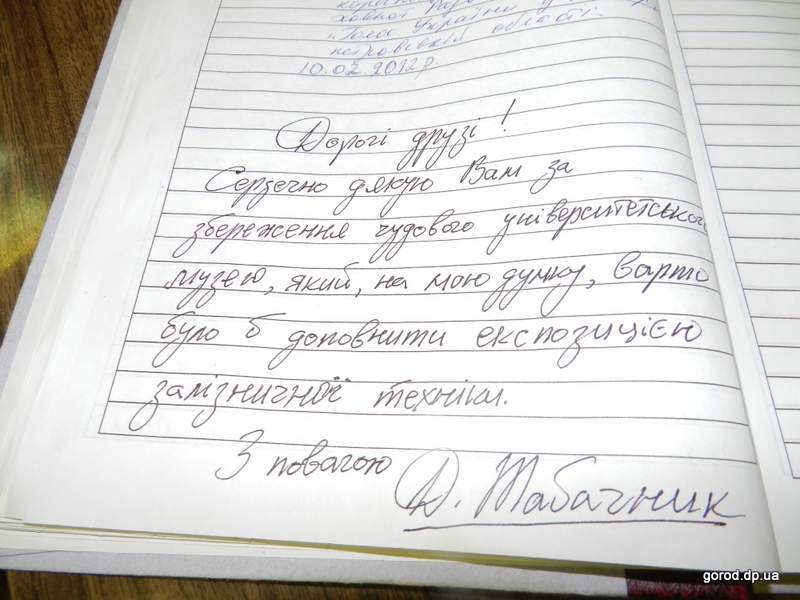 ховної Ради
"Голос України" у
області.
10.02.2012р.
Дорогі друзі!
Сердечно дякую Вам за
збереження чудового університетського
музею, який, на мою думку, варто
було б доповнити експозицією
залізничної техніки.
З повагою Д. Табачник
gorod.dp.ua